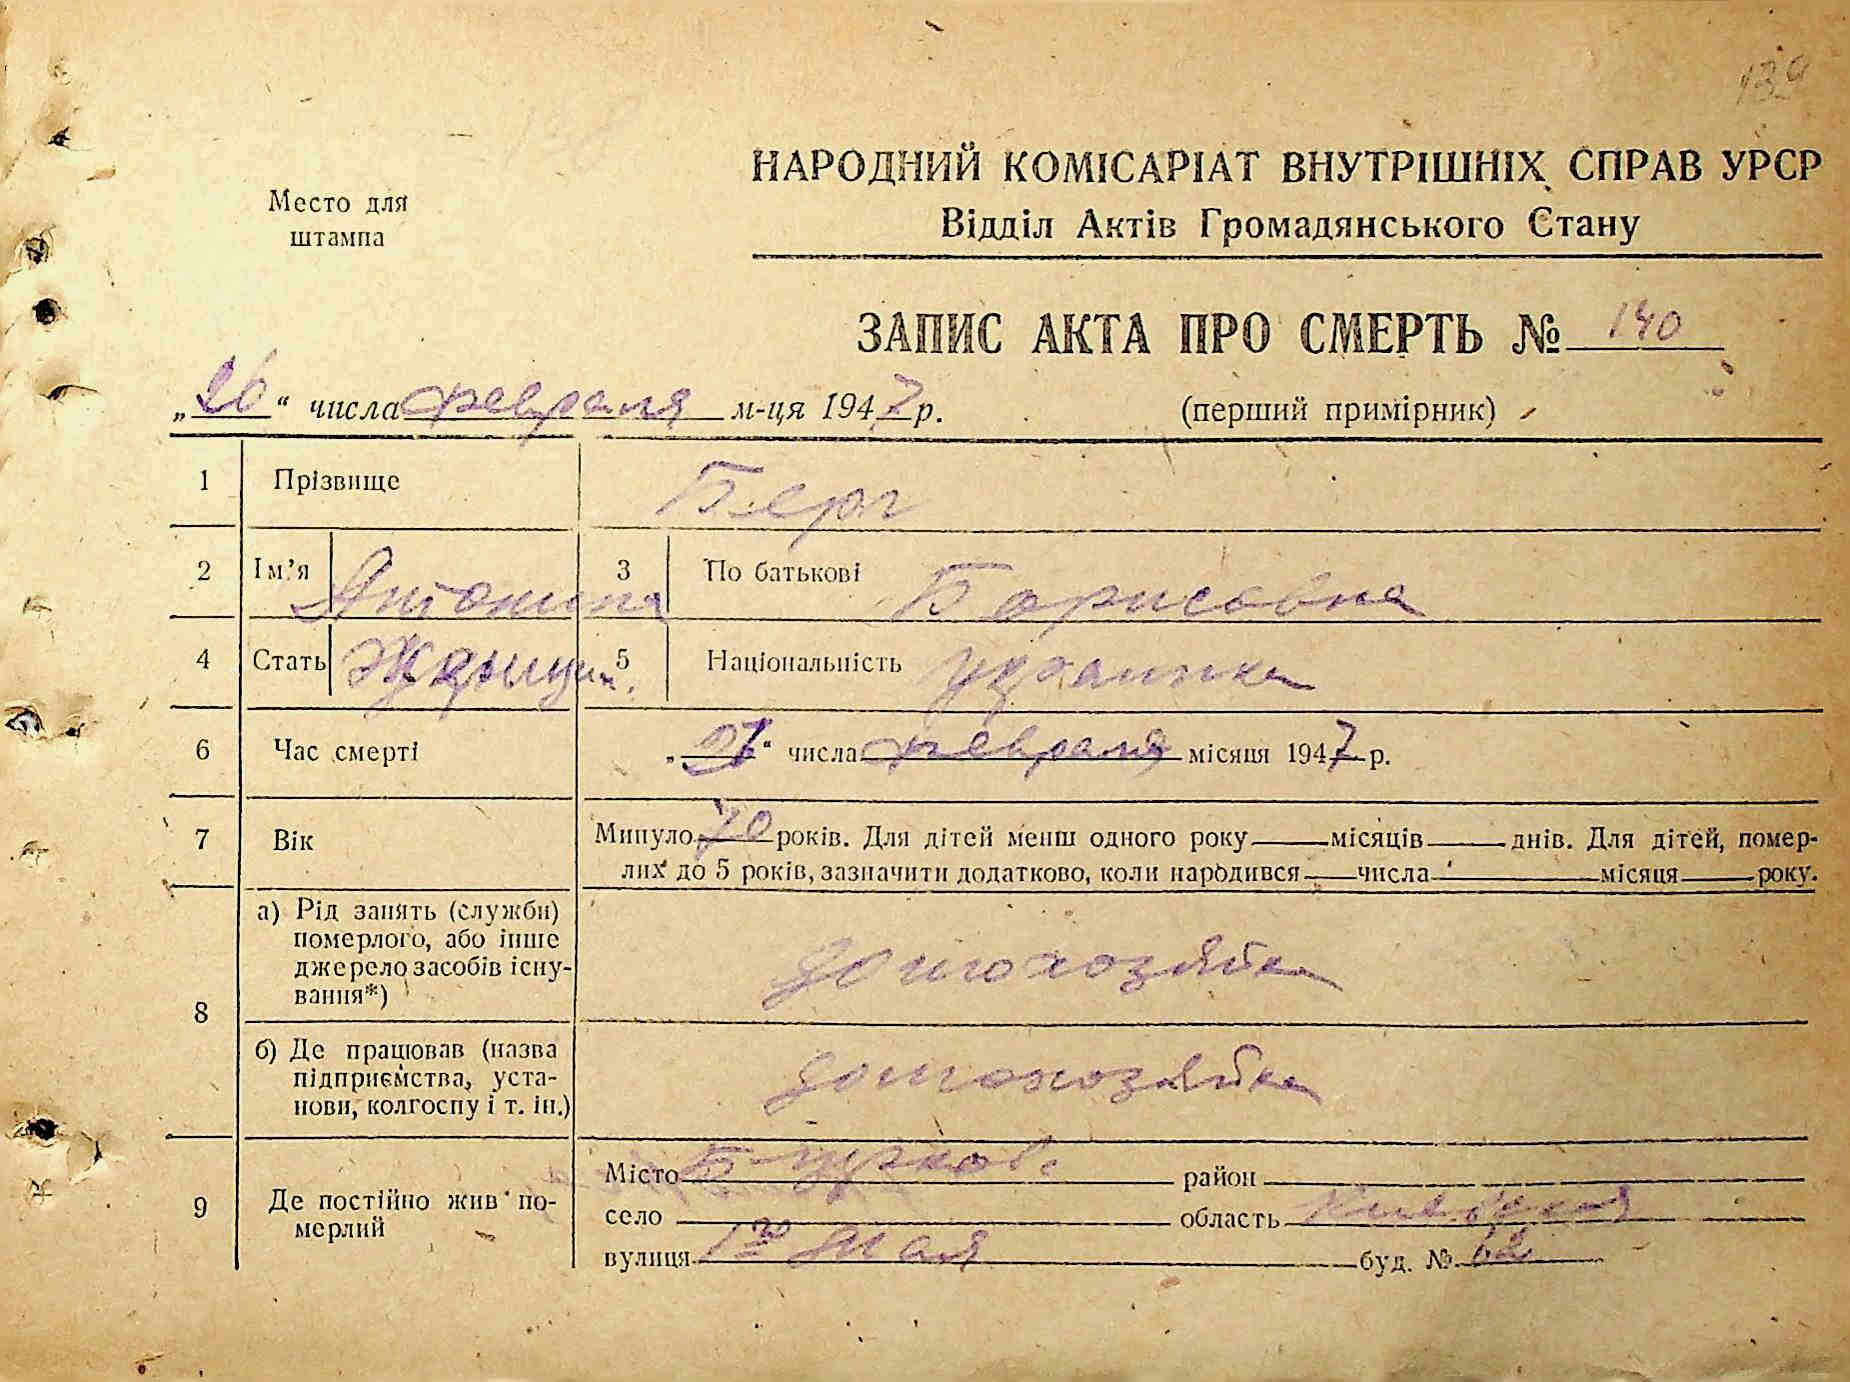 139
Место для
штампа
НАРОДНИЙ КОМІСАРІАТ ВНУТРІШНІХ СПРАВ УРСР
Відділ Актів Громадянського Стану
ЗАПИС АКТА ПРО СМЕРТЬ № 140
„26“ числа февраля м-ця 1947 р. (перший примірник)
1 Прізвище Берг
2 Ім’я Антонина 3 По батькові Борисовна
4 Стать Женщин. 5 Національність украинка
6 Час смерті „ “ числа февраля місяця 1947 р.
7 Вік Минуло 70 років. Для дітей менш одного року місяців днів. Для дітей, помер-
лих до 5 років, зазначити додатково, коли народився числа місяця року.
8 а) Рід занять (служби)
померлого, або інше
джерело засобів існу-
вання*) домохозяйка
б) Де працював (назва
підприємства, уста-
нови, колгоспу і т. ін.) домохозяйка
9 Де постійно жив по-
мерлий
Місто район
село область Киевская
вулиця 1го Мая буд. № 62